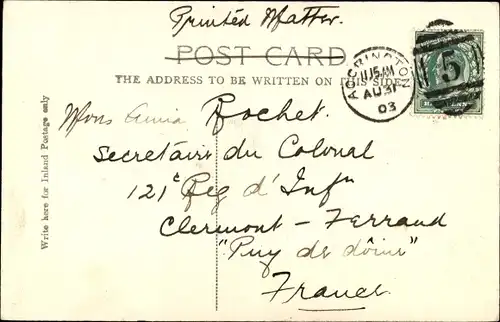 Printed Matter.
POST CARD
THE ADDRESS TO BE WRITTEN ON THIS SIDE
Write here for Inland Postage only
ACCRINGTON
11 15 AM
AU 31
03
5
Mons Rochet.
Secretaire du Colonal
121e Reg d'Infn
Clermont-Ferrand
"Puy de dôme"
France